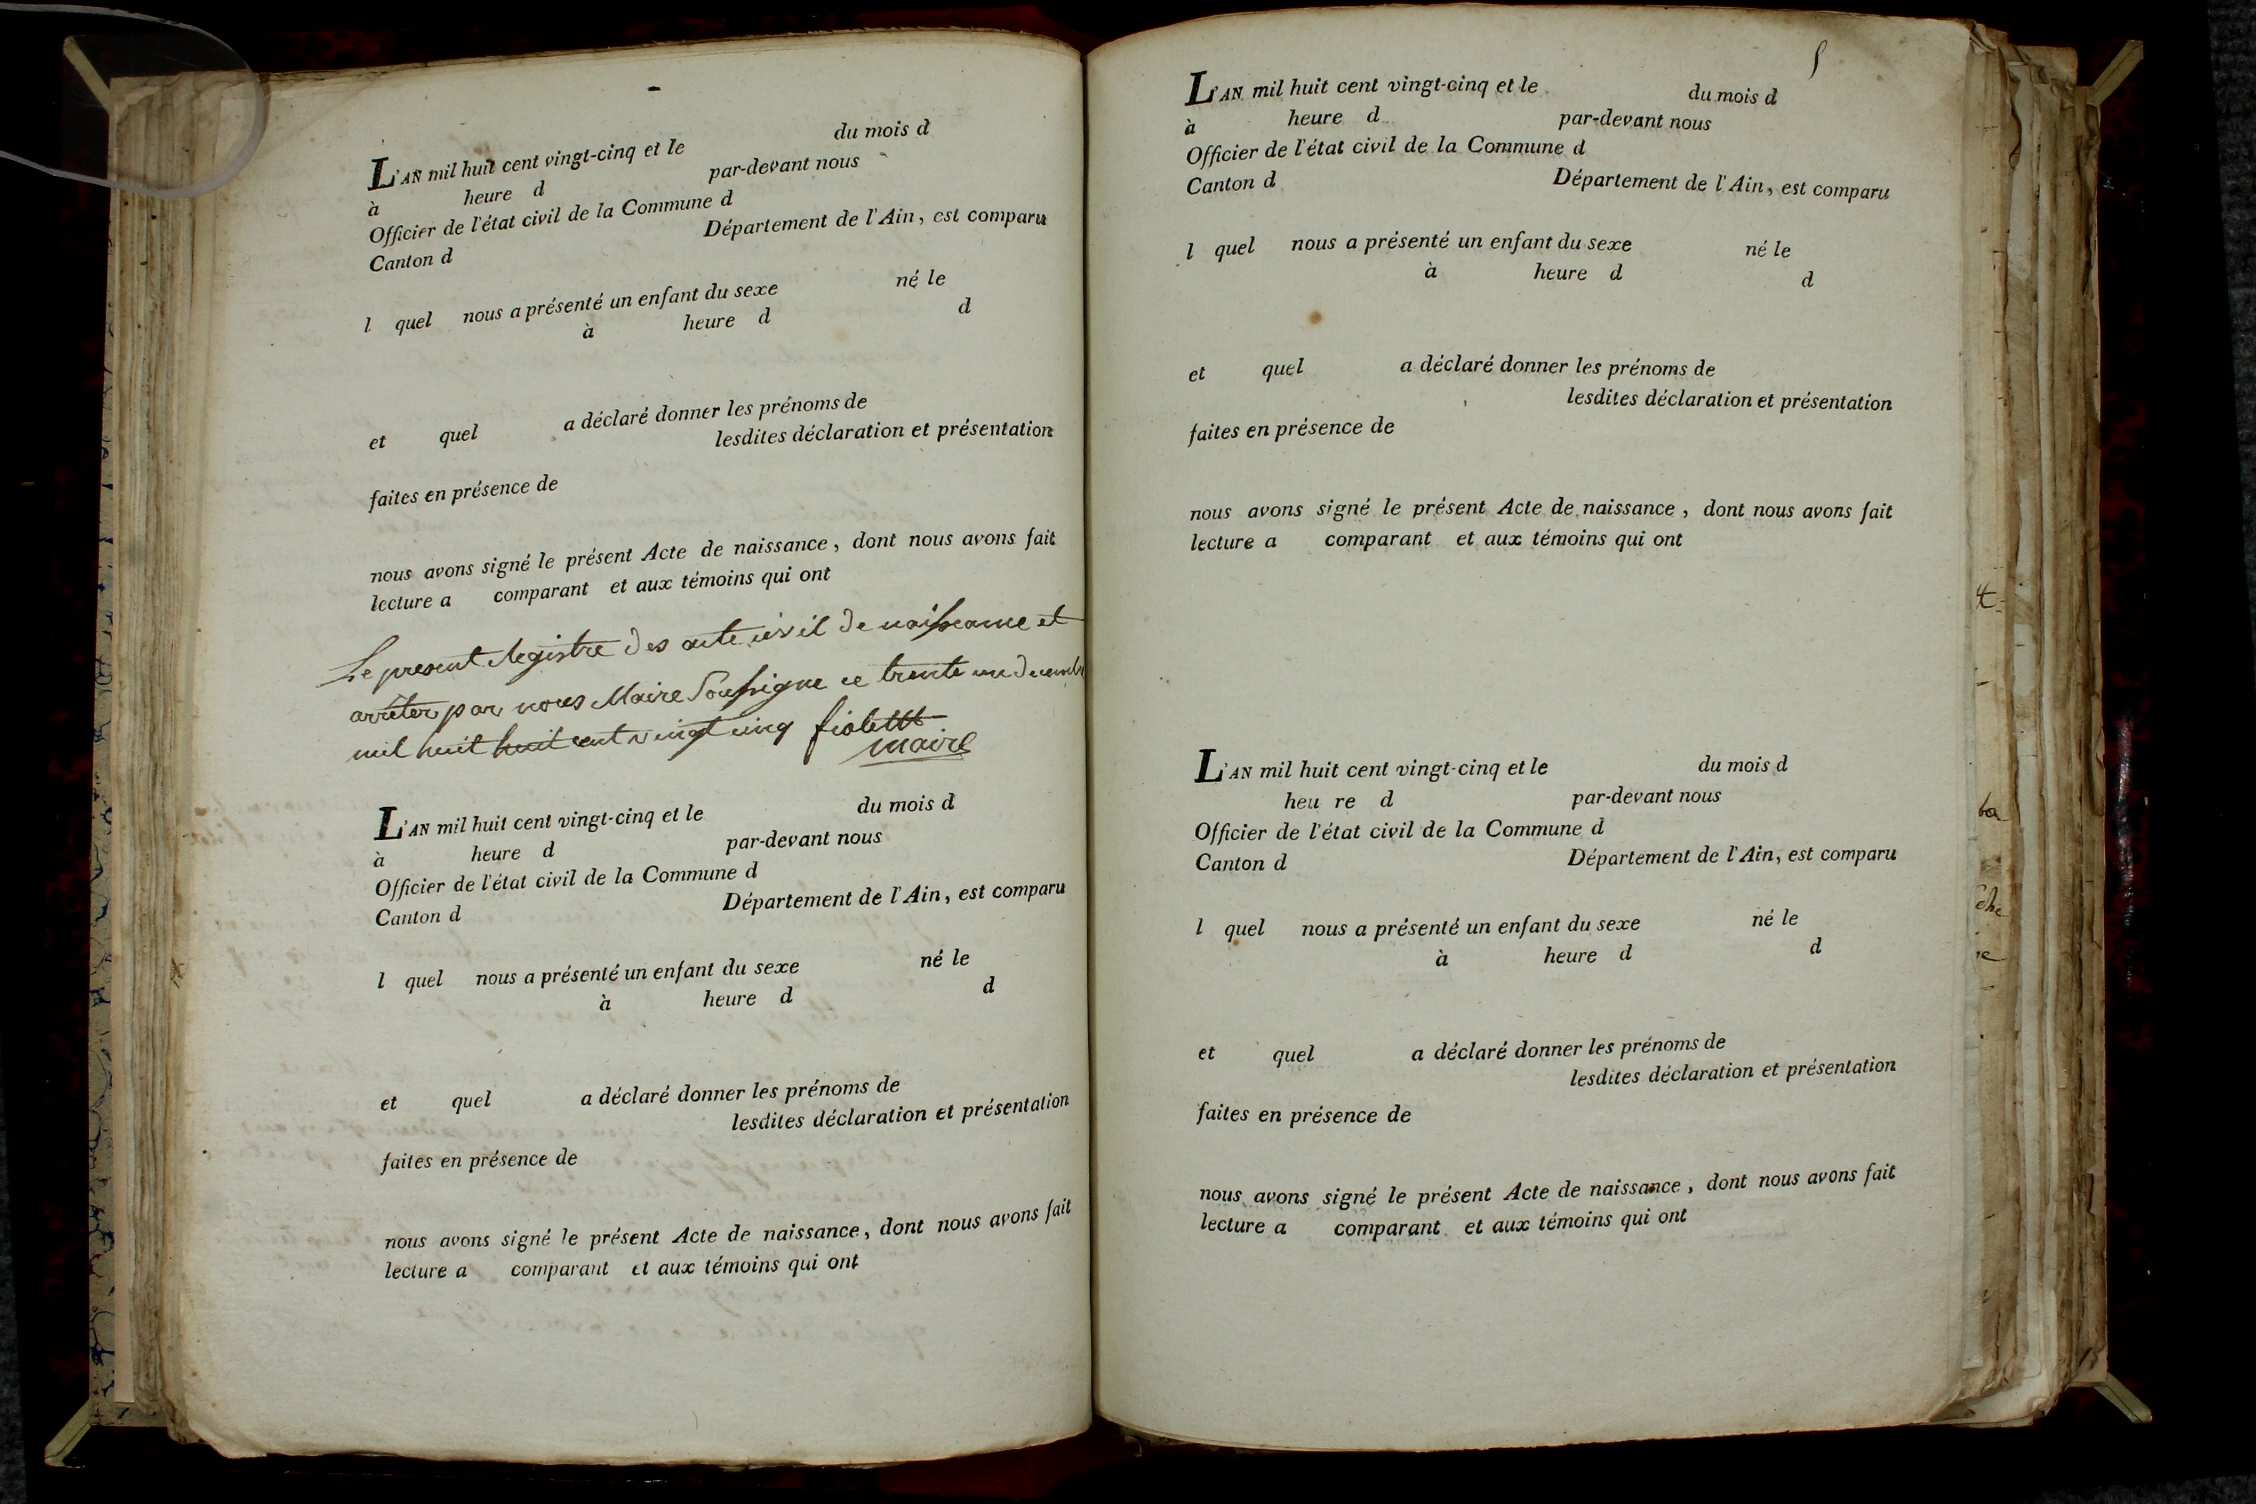 L'AN mil huit cent vingt-cinq et le du mois d
à heure d par-devant nous
Officier de l'état civil de la Commune d
Canton d Département de l'Ain, est comparu
l quel nous a présenté un enfant du sexe né le
à heure d d
et quel a déclaré donner les prénoms de
lesdites déclaration et présentation
faites en présence de
nous avons signé le présent Acte de naissance, dont nous avons fait
lecture a comparant et aux témoins qui ont
Le present Registre des acte civil de naissance et
arrêter par nous Maire Soussigne ce trente un decembre
mil huit huit cent vingt cinq fiolett
maire
L'AN mil huit cent vingt-cinq et le du mois d
à heure d par-devant nous
Officier de l'état civil de la Commune d
Canton d Département de l'Ain, est comparu
l quel nous a présenté un enfant du sexe né le
à heure d d
et quel a déclaré donner les prénoms de
lesdites déclaration et présentation
faites en présence de
nous avons signé le présent Acte de naissance, dont nous avons fait
lecture a comparant et aux témoins qui ont
5
L'AN mil huit cent vingt-cinq et le du mois d
à heure d par-devant nous
Officier de l'état civil de la Commune d
Canton d Département de l'Ain, est comparu
l quel nous a présenté un enfant du sexe né le
à heure d d
et quel a déclaré donner les prénoms de
lesdites déclaration et présentation
faites en présence de
nous avons signé le présent Acte de naissance, dont nous avons fait
lecture a comparant et aux témoins qui ont
L'AN mil huit cent vingt-cinq et le du mois d
heu re d par-devant nous
Officier de l'état civil de la Commune d
Canton d Département de l'Ain, est comparu
l quel nous a présenté un enfant du sexe né le
à heure d d
et quel a déclaré donner les prénoms de
lesdites déclaration et présentation
faites en présence de
nous avons signé le présent Acte de naissance, dont nous avons fait
lecture a comparant et aux témoins qui ont